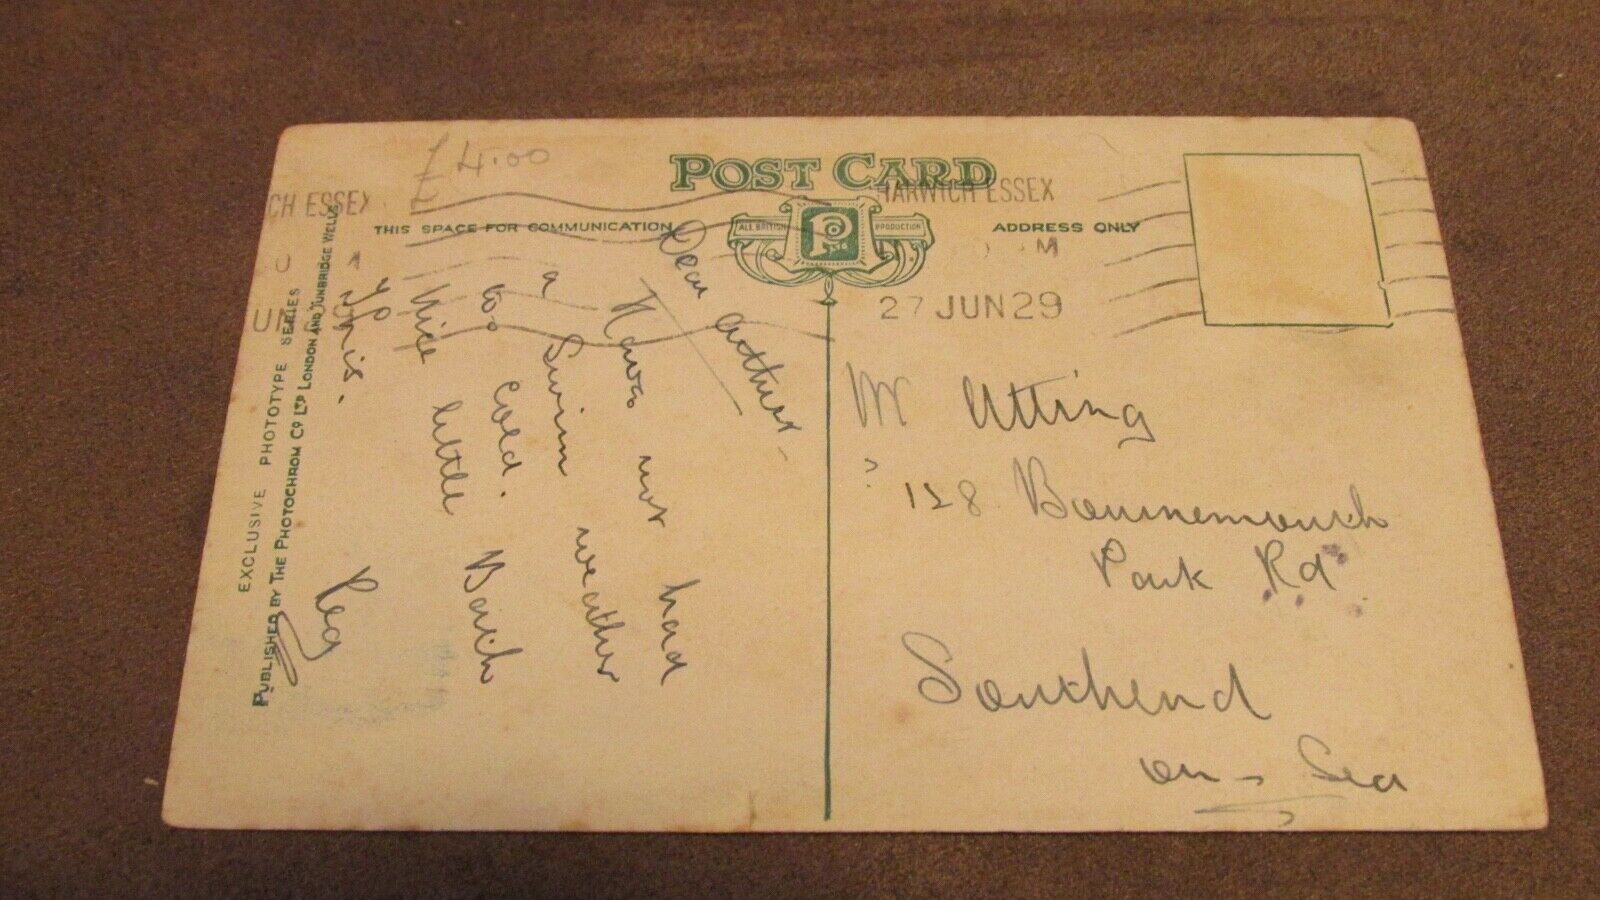 £4.00
POST CARD
CH ESSEX
HARWICH ESSEX
THIS SPACE FOR COMMUNICATION
ALL BRITISH PRODUCTION
P Co
ADDRESS ONLY
M
27 JUN 29
Dear Arthur
Have not had
a Swim weather
too cold.
Nice little Beach
this.
Reg
Mr Utting
128 Bournemouth
Park Rd
Southend
on-Sea
EXCLUSIVE PHOTOTYPE SERIES
PUBLISHED BY THE PHOTOCHROM CO LTD LONDON AND TUNBRIDGE WELLS